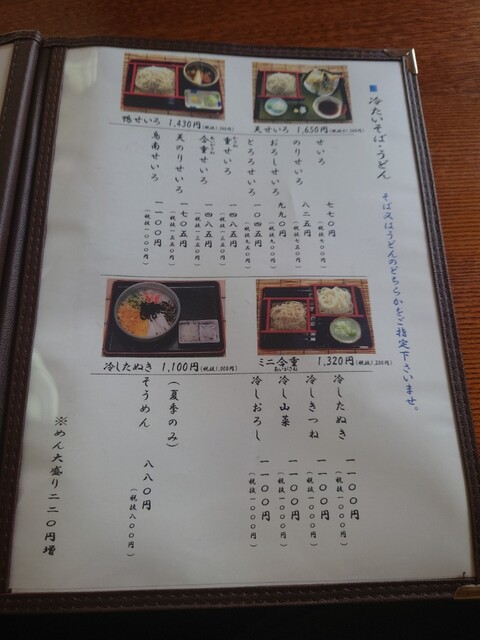 ■ 冷たいそば・うどん
そば又はうどんのどちらかをご指定下さいませ。
鴨せいろ 1,430円(税抜1,300円)
天せいろ 1,650円(税抜1,500円)
せいろ 七七〇円(税抜七〇〇円)
のりせいろ 八二五円(税抜七五〇円)
おろしせいろ 九九〇円(税抜九〇〇円)
とろろせいろ 一〇四五円(税抜九五〇円)
重せいろ 一四八五円(税抜一三五〇円)
合重せいろ 一四八五円(税抜一三五〇円)
天のりせいろ 一七〇五円(税抜一五五〇円)
鳥南せいろ 一一〇〇円(税抜一〇〇〇円)
冷したぬき 1,100円(税抜1,000円)
ミニ合重 1,320円(税抜1,200円)
あいがさね
冷したぬき 一一〇〇円(税抜一〇〇〇円)
冷しきつね 一一〇〇円(税抜一〇〇〇円)
冷し山菜 一一〇〇円(税抜一〇〇〇円)
冷しおろし 一一〇〇円(税抜一〇〇〇円)
(夏季のみ)
そうめん 八八〇円(税抜八〇〇円)
※めん大盛り二二〇円増